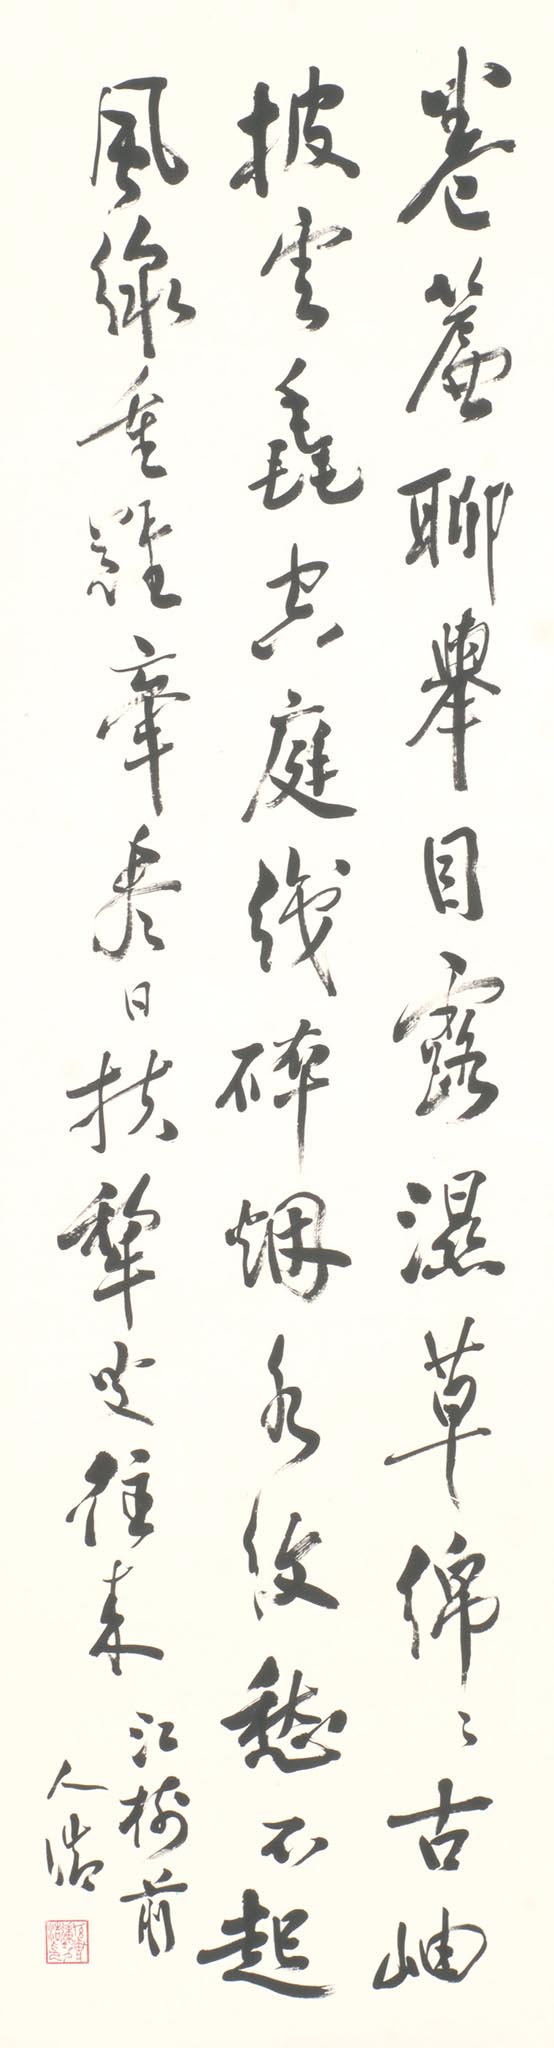 卷簾聊舉目露濕草綿〻古岫
披雲毳空庭織碎烟水紋愁不起
風線重難牽盡日扶犁叟往來
江樹前
人